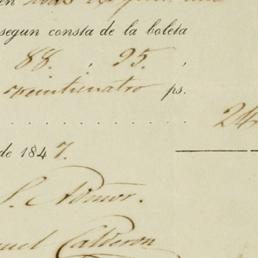 en
segun consta de la boleta
88. , 95. ,
veinticuatro ps.
24
de 1847.
S. Admor.
Calderon